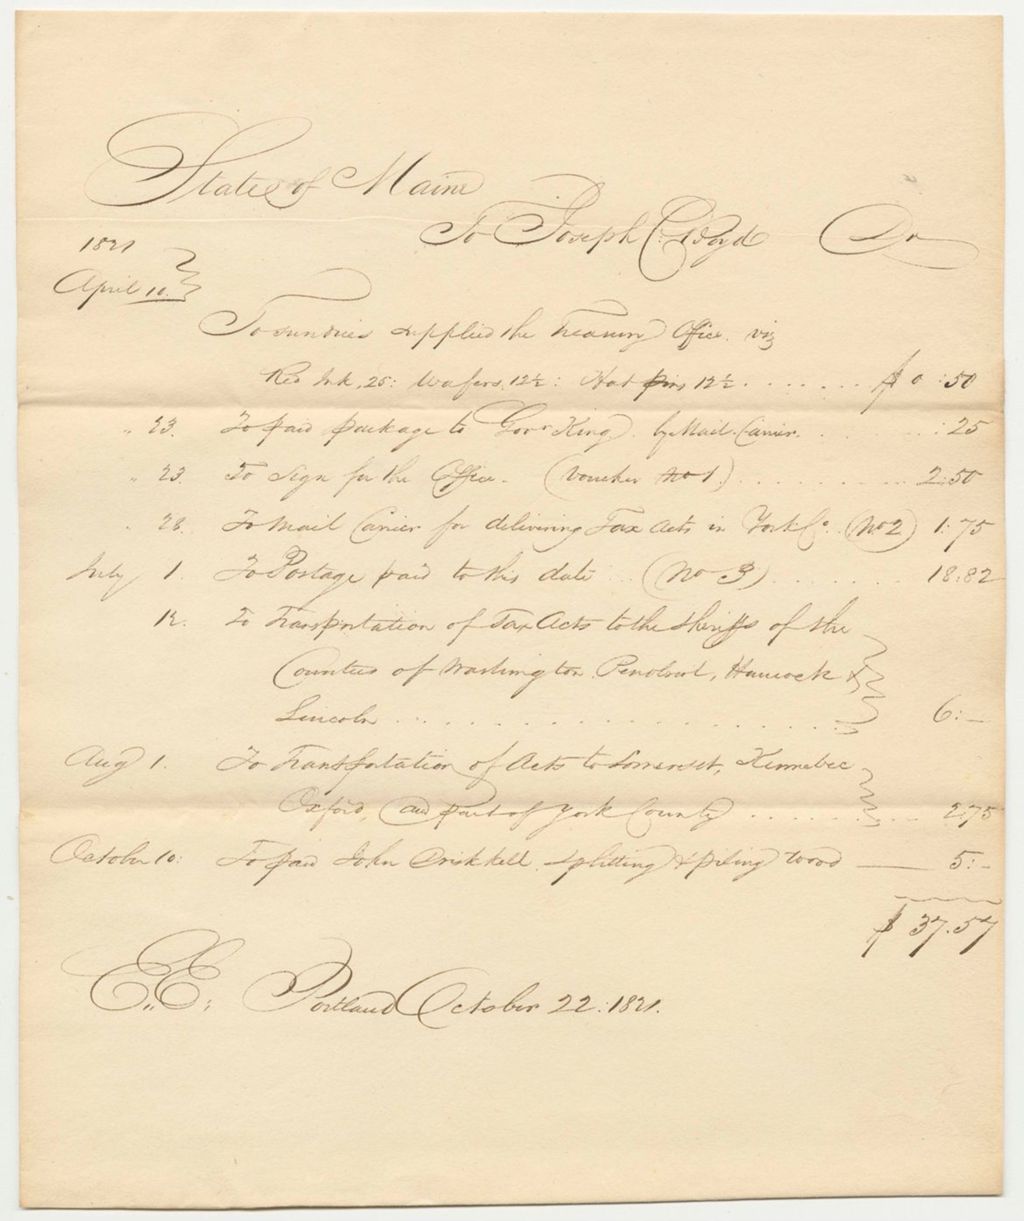 State of Maine
To Joseph C. Boyd Dr
1821
April 10.
To sundries supplied the Treasury Office. viz
Red Ink, 25: Wafers, 12½: Hat pins 12½ . . . . . . . $0:50
" 23. To paid package to Govr King, by Mail Carrier. . . . . . :25
" 23. To Sign for the Office. (Voucher No 1.) . . . . . . . . . . 2.50
" 28. To Mail Carrier for delivering Tax Acts in York Co. (No 2) 1:75
July 1. To Postage paid to this date . . (No 3) . . . . . . . 18:82
12. To Transportation of Tax Acts to the Sheriffs of the
Counties of Washington, Penobscot, Hancock &
Lincoln . . . . . . . . . . . . . . . . . . . 6:—
Aug 1. To Transportation of Acts to Somerset, Kennebec
Oxford, and part of York County . . . . . . . . . . 2.75
October 10: To paid John Driskell, splitting & piling wood — 5:—
$37.57
E.. E: Portland October 22: 1821.